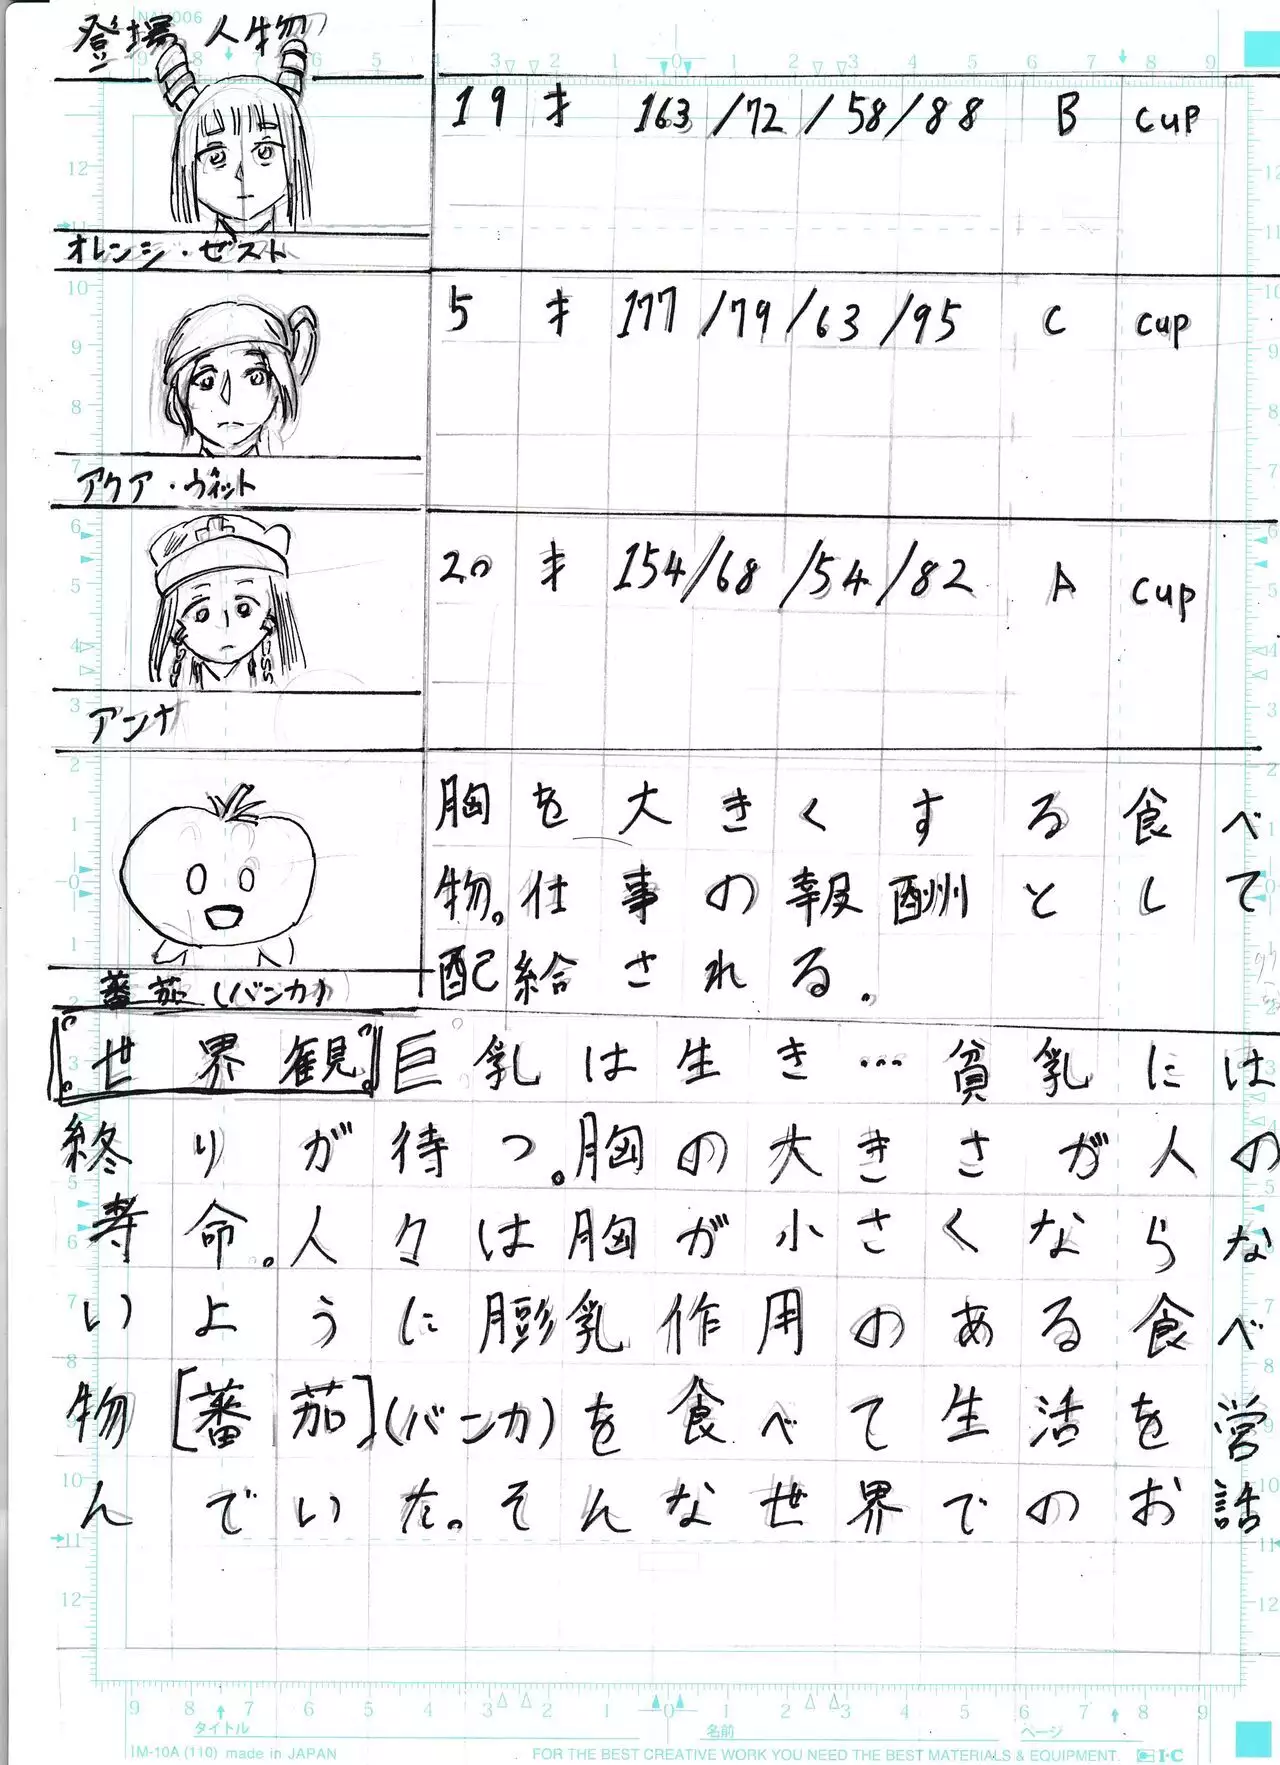 登場人物
19才 163/72/58/88 B cup
オレンジ・ゼスト
5才 177/79/63/95 C cup
アクア・ヴィット
20才 154/68/54/82 A cup
アンナ
胸を大きくする食べ
物。仕事の報酬として
配給される。
蕃茄(バンカ)
『世界観』巨乳は生き…貧乳には
終りが待つ。胸の大きさが人の
寿命。人々は胸が小さくならな
いように膨乳作用のある食べ
物[蕃茄](バンカ)を食べて生活を営
んでいた。そんな世界でのお話
タイトル 名前 ページ
IM-10A (110) made in JAPAN FOR THE BEST CREATIVE WORK YOU NEED THE BEST MATERIALS & EQUIPMENT. I・C